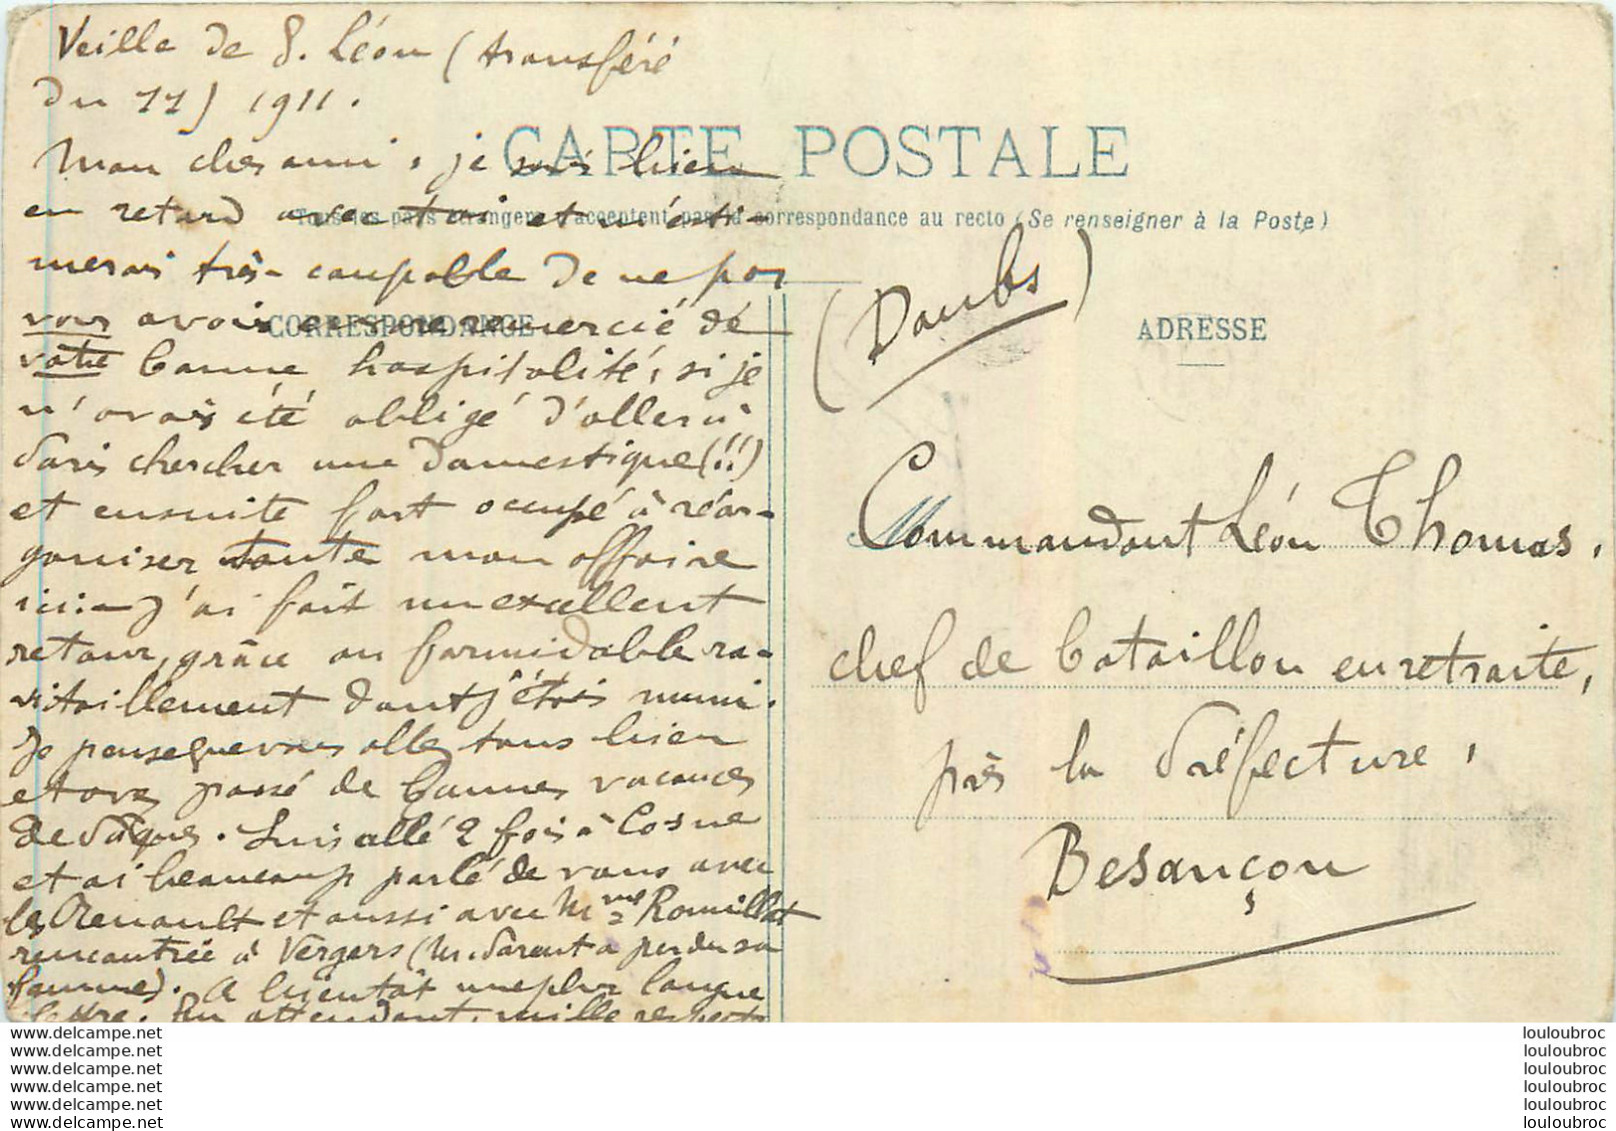 Veille de S. Léon (transféré
du 11) 1911.
CARTE POSTALE
Mon cher ami, je suis bien
en retard avec toi et m'esti-
Tous les pays étrangers n'acceptent pas la correspondance au recto (Se renseigner à la Poste)
merais très-coupable de ne pas
vous avoir encore remercié de
CORRESPONDANCE
votre bonne hospitalité, si je
n'avais été obligé d'aller à
Paris chercher une domestique (!!)
et ensuite fort occupé à réor-
ganiser toute mon affaire
ici:- J'ai fait un excellent
retour, grâce au formidable ra-
vitaillement dont j'étais muni.
Je pense que vous allez tous bien
et avez passé de bonnes vacances
de Pâques. Suis allé 2 fois à Cosne
et ai beaucoup parlé de vous avec
les Renault et aussi avec Mme Romillat
rencontrée à Vergers (M. Parent a perdu sa
femme). A bientôt une plus longue
lettre. En attendant, mille respects
(Doubs)
ADRESSE
Commandant Léon Thomas,
chef de bataillon en retraite,
près la Préfecture,
Besançon
www.delcampe.net
www.delcampe.net
www.delcampe.net
www.delcampe.net
www.delcampe.net
www.delcampe.net
louloubroc
louloubroc
louloubroc
louloubroc
louloubroc
louloubroc